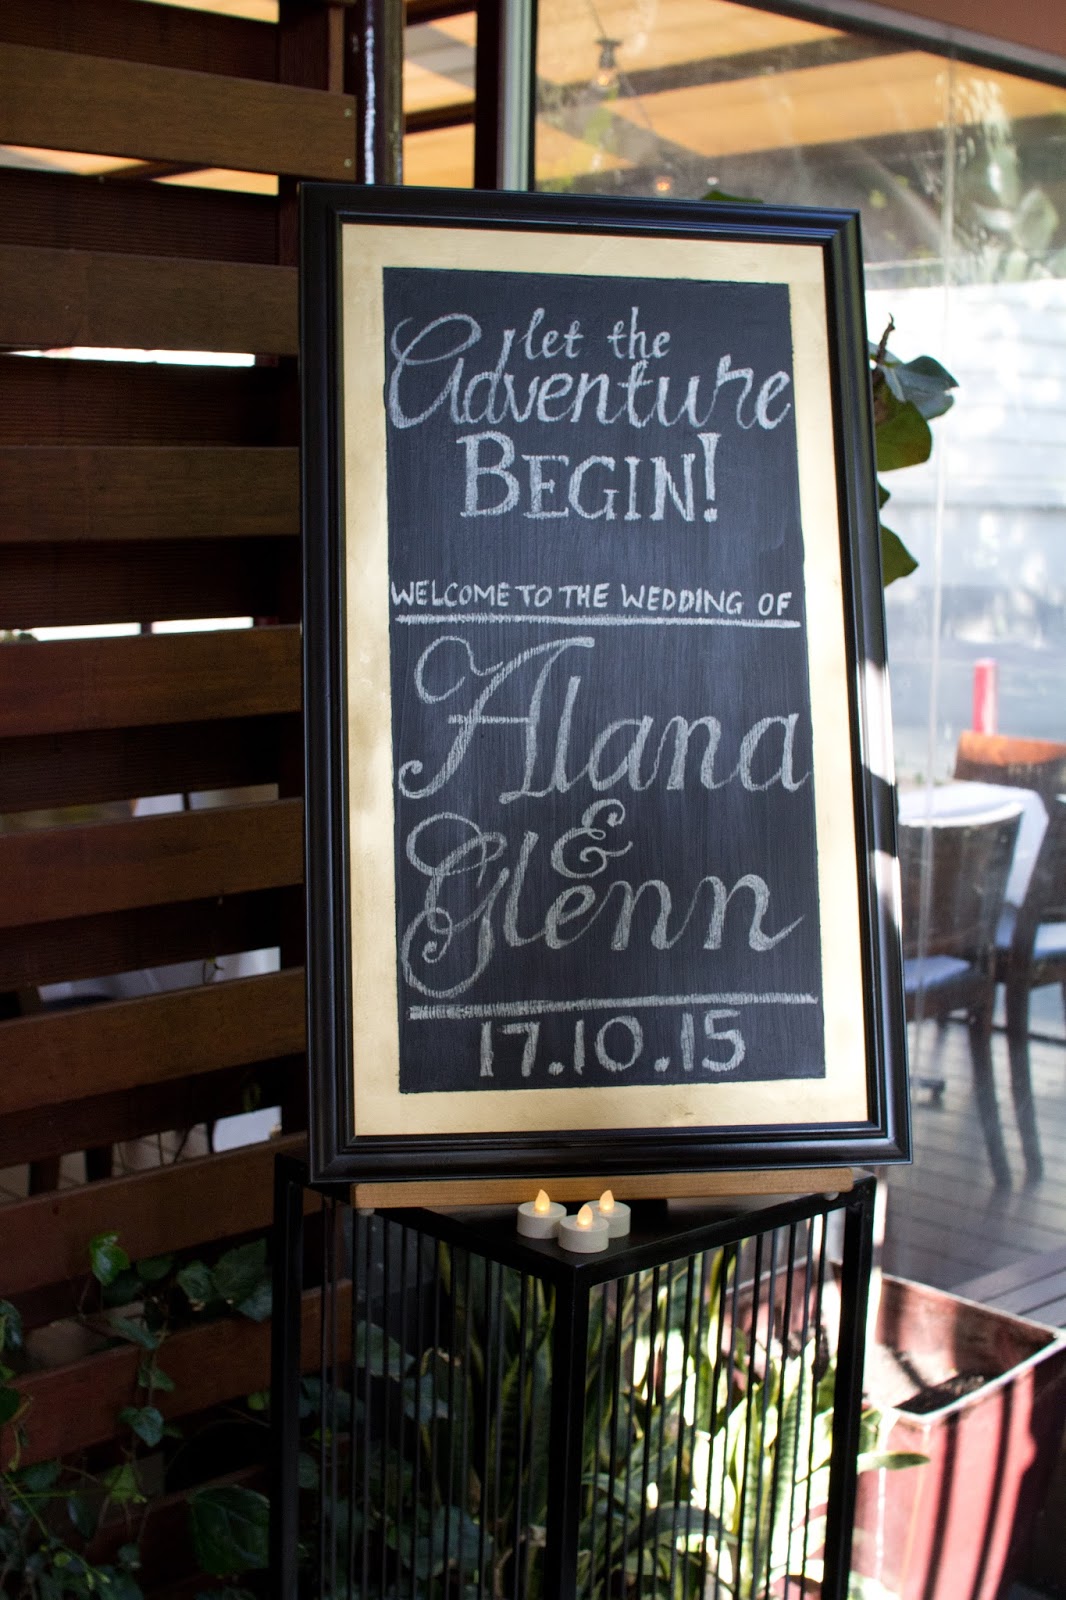 let the
Adventure
BEGIN!
WELCOME TO THE WEDDING OF
Alana
&
Glenn
17.10.15